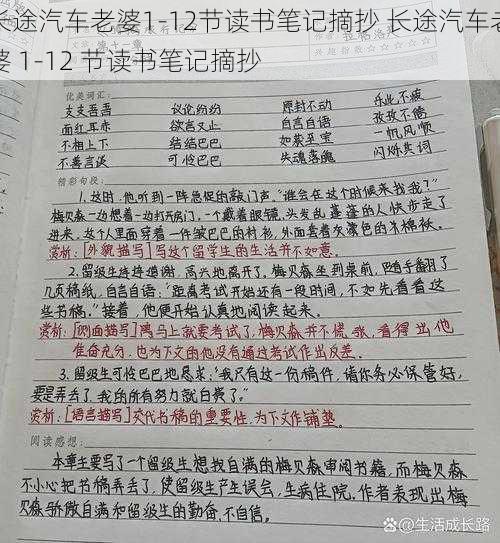 长途汽车老婆1-12节读书笔记摘抄 长途汽车老
婆 1-12 节读书笔记摘抄
优美词汇:
支支吾吾 议论纷纷 原封不动 乐此不疲
面红耳赤 欲言又止 自言自语 孜孜不倦
不相上下 结结巴巴 如获至宝 一帆风顺
不善言谈 可怜巴巴 失魂落魄 闪烁其词
精彩句段:
1. 这时,他听到一阵急促的敲门声。“谁会在这个时候来找我?”
梅贝森一边想着一边打开房门,一个戴着眼镜,头发乱蓬蓬的人快步走了
进来,这个人里面穿着一件皱巴巴的衬衫,外面套着灰漆色的冬棉袄。
赏析:[外貌描写]写这个留学生的生活并不如意。
2. 留级生连连道谢,高兴地离开了,梅贝森坐到桌前,随手翻了
几页稿纸,自言自语:“距离考试开始还有一段时间,不如先看看这
些书稿。”接着,他便开始认真地阅读起来。
赏析:[侧面描写]离马上就要考试了,梅贝森并不慌张,看得出他
准备充分,也为下文的他没有通过考试作出反差。
3. 留级生可怜巴巴地恳求:“我只有这一份稿件,请你务必保管好,
要是弄丢了,我的所有努力就白费了。”
赏析:[语言描写]交代书稿的重要性,为下文作铺垫。
阅读感想:
本章主要写了一个留级生想找自满的梅贝森审阅书籍,而梅贝森
不小心把书稿弄丢了,使留级生产生误会,生病住院。作者表现出梅
贝森骄傲自满和留级生的勤奋,不自信。
@生活成长路